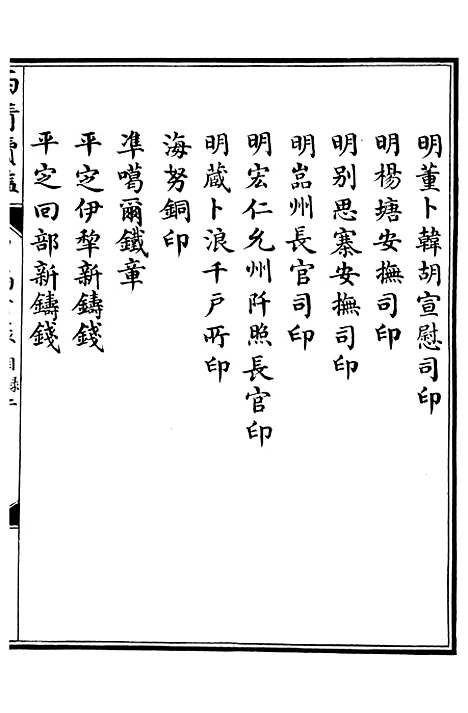 明董卜韓胡宣慰司印
明楊塘安撫司印
明别思寨安撫司印
明喦州長官司印
明宏仁允州阡照長官印
明蔵卜浪千戸所印
海努銅印
凖噶爾鐵章
平定伊犂新鑄錢
平定回部新鑄錢
西清續鑑
目録